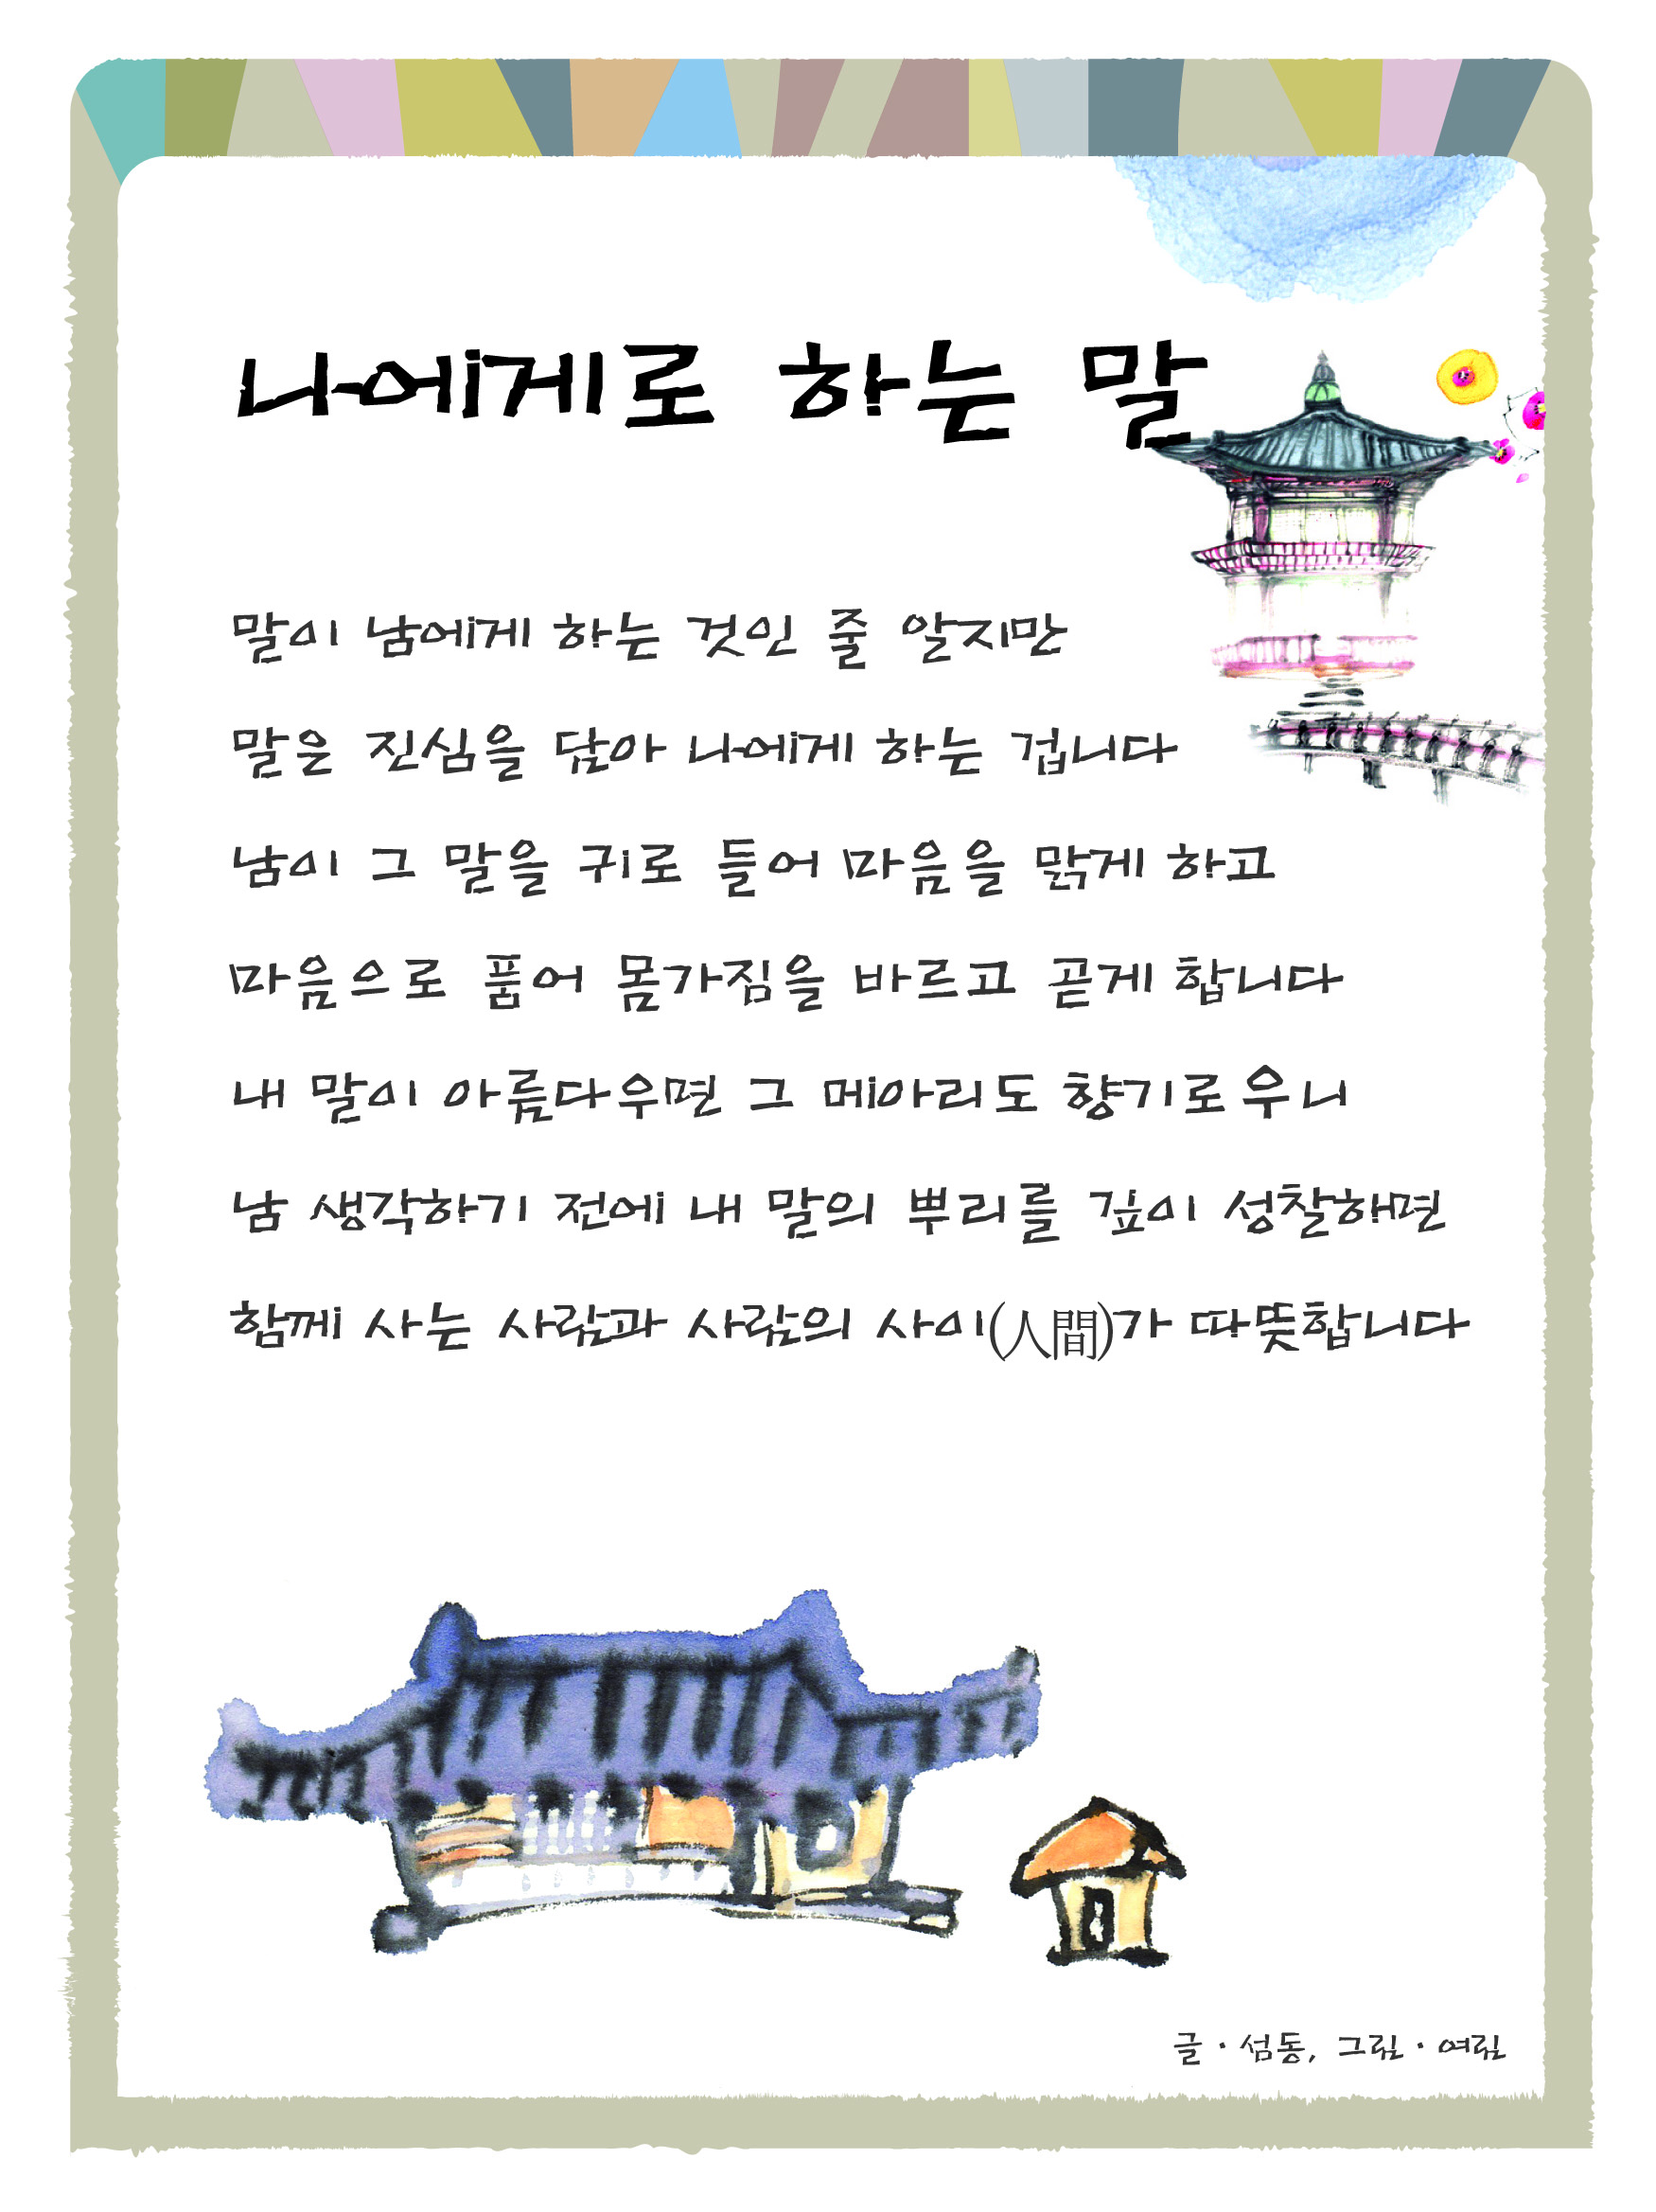 나에게로 하는 말
말이 남에게 하는 것인 줄 알지만
말은 진심을 담아 나에게 하는 겁니다
남이 그 말을 귀로 들어 마음을 맑게 하고
마음으로 품어 몸가짐을 바르고 곧게 합니다
내 말이 아름다우면 그 메아리도 향기로우니
남 생각하기 전에 내 말의 뿌리를 깊이 성찰해면
함께 사는 사람과 사람의 사이(人間)가 따뜻합니다
글·섬동, 그림·여림